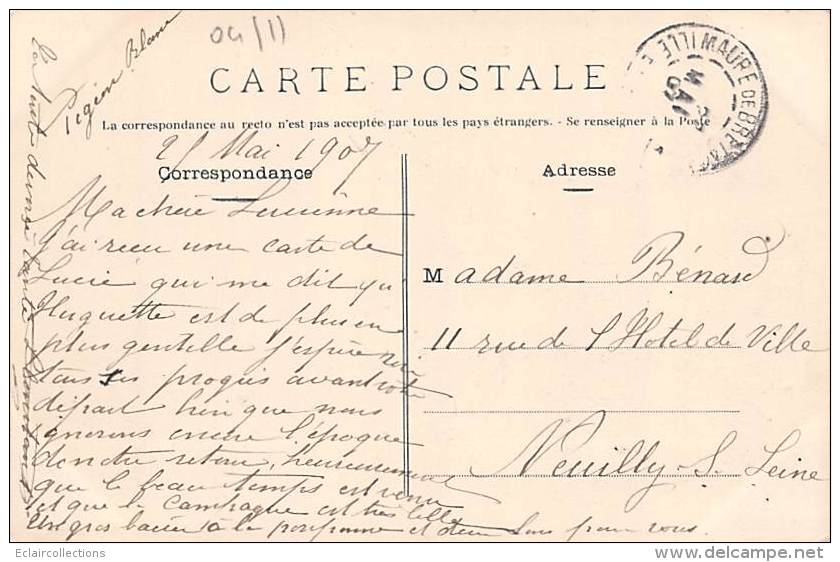 04/11
Pigeon Blanc
CARTE POSTALE
La correspondance au recto n'est pas acceptée par tous les pays étrangers. - Se renseigner à la Poste
MAURE DE BRETAGNE ILLE
MAI
25 Mai 1907
Correspondance
Ma chère Lucienne
J'ai recu une carte de
Lucie qui me dit qu'
Huguette est de plus en
plus gentille j'espère voir
tous ses progrès avant votre
départ bien que nous
ignorons encore l'époque
de notre retour, heureusement
que le beau temps est venu
et que la campagne est très belle
Un gros baiser à la pouponne et deux pour vous.
Adresse
Madame Bénard
11 rue de l'Hotel de Ville
Neuilly-S. Seine
Eclaircollections
delcampe.net